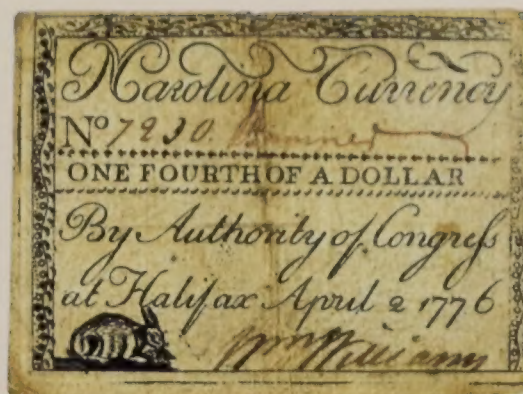 N Carolina Currency
No 7230.
ONE FOURTH OF A DOLLAR
By Authority of Congress
at Halifax April 2 1776
Wm Williams